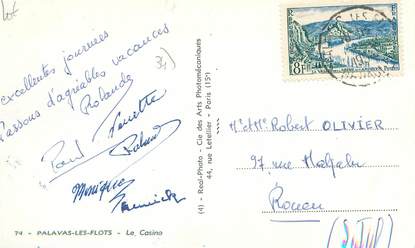 excellentes journées
Passons d'agréables vacances
Rolande
Paul
Monique
34
74 - PALAVAS-LES-FLOTS - Le Casino
(4) - Real-Photo - Cie des Arts Photomécaniques
44, rue Letellier - Paris (15e)
8F
Mr et Mme Robert OLIVIER
97 rue
Rouen